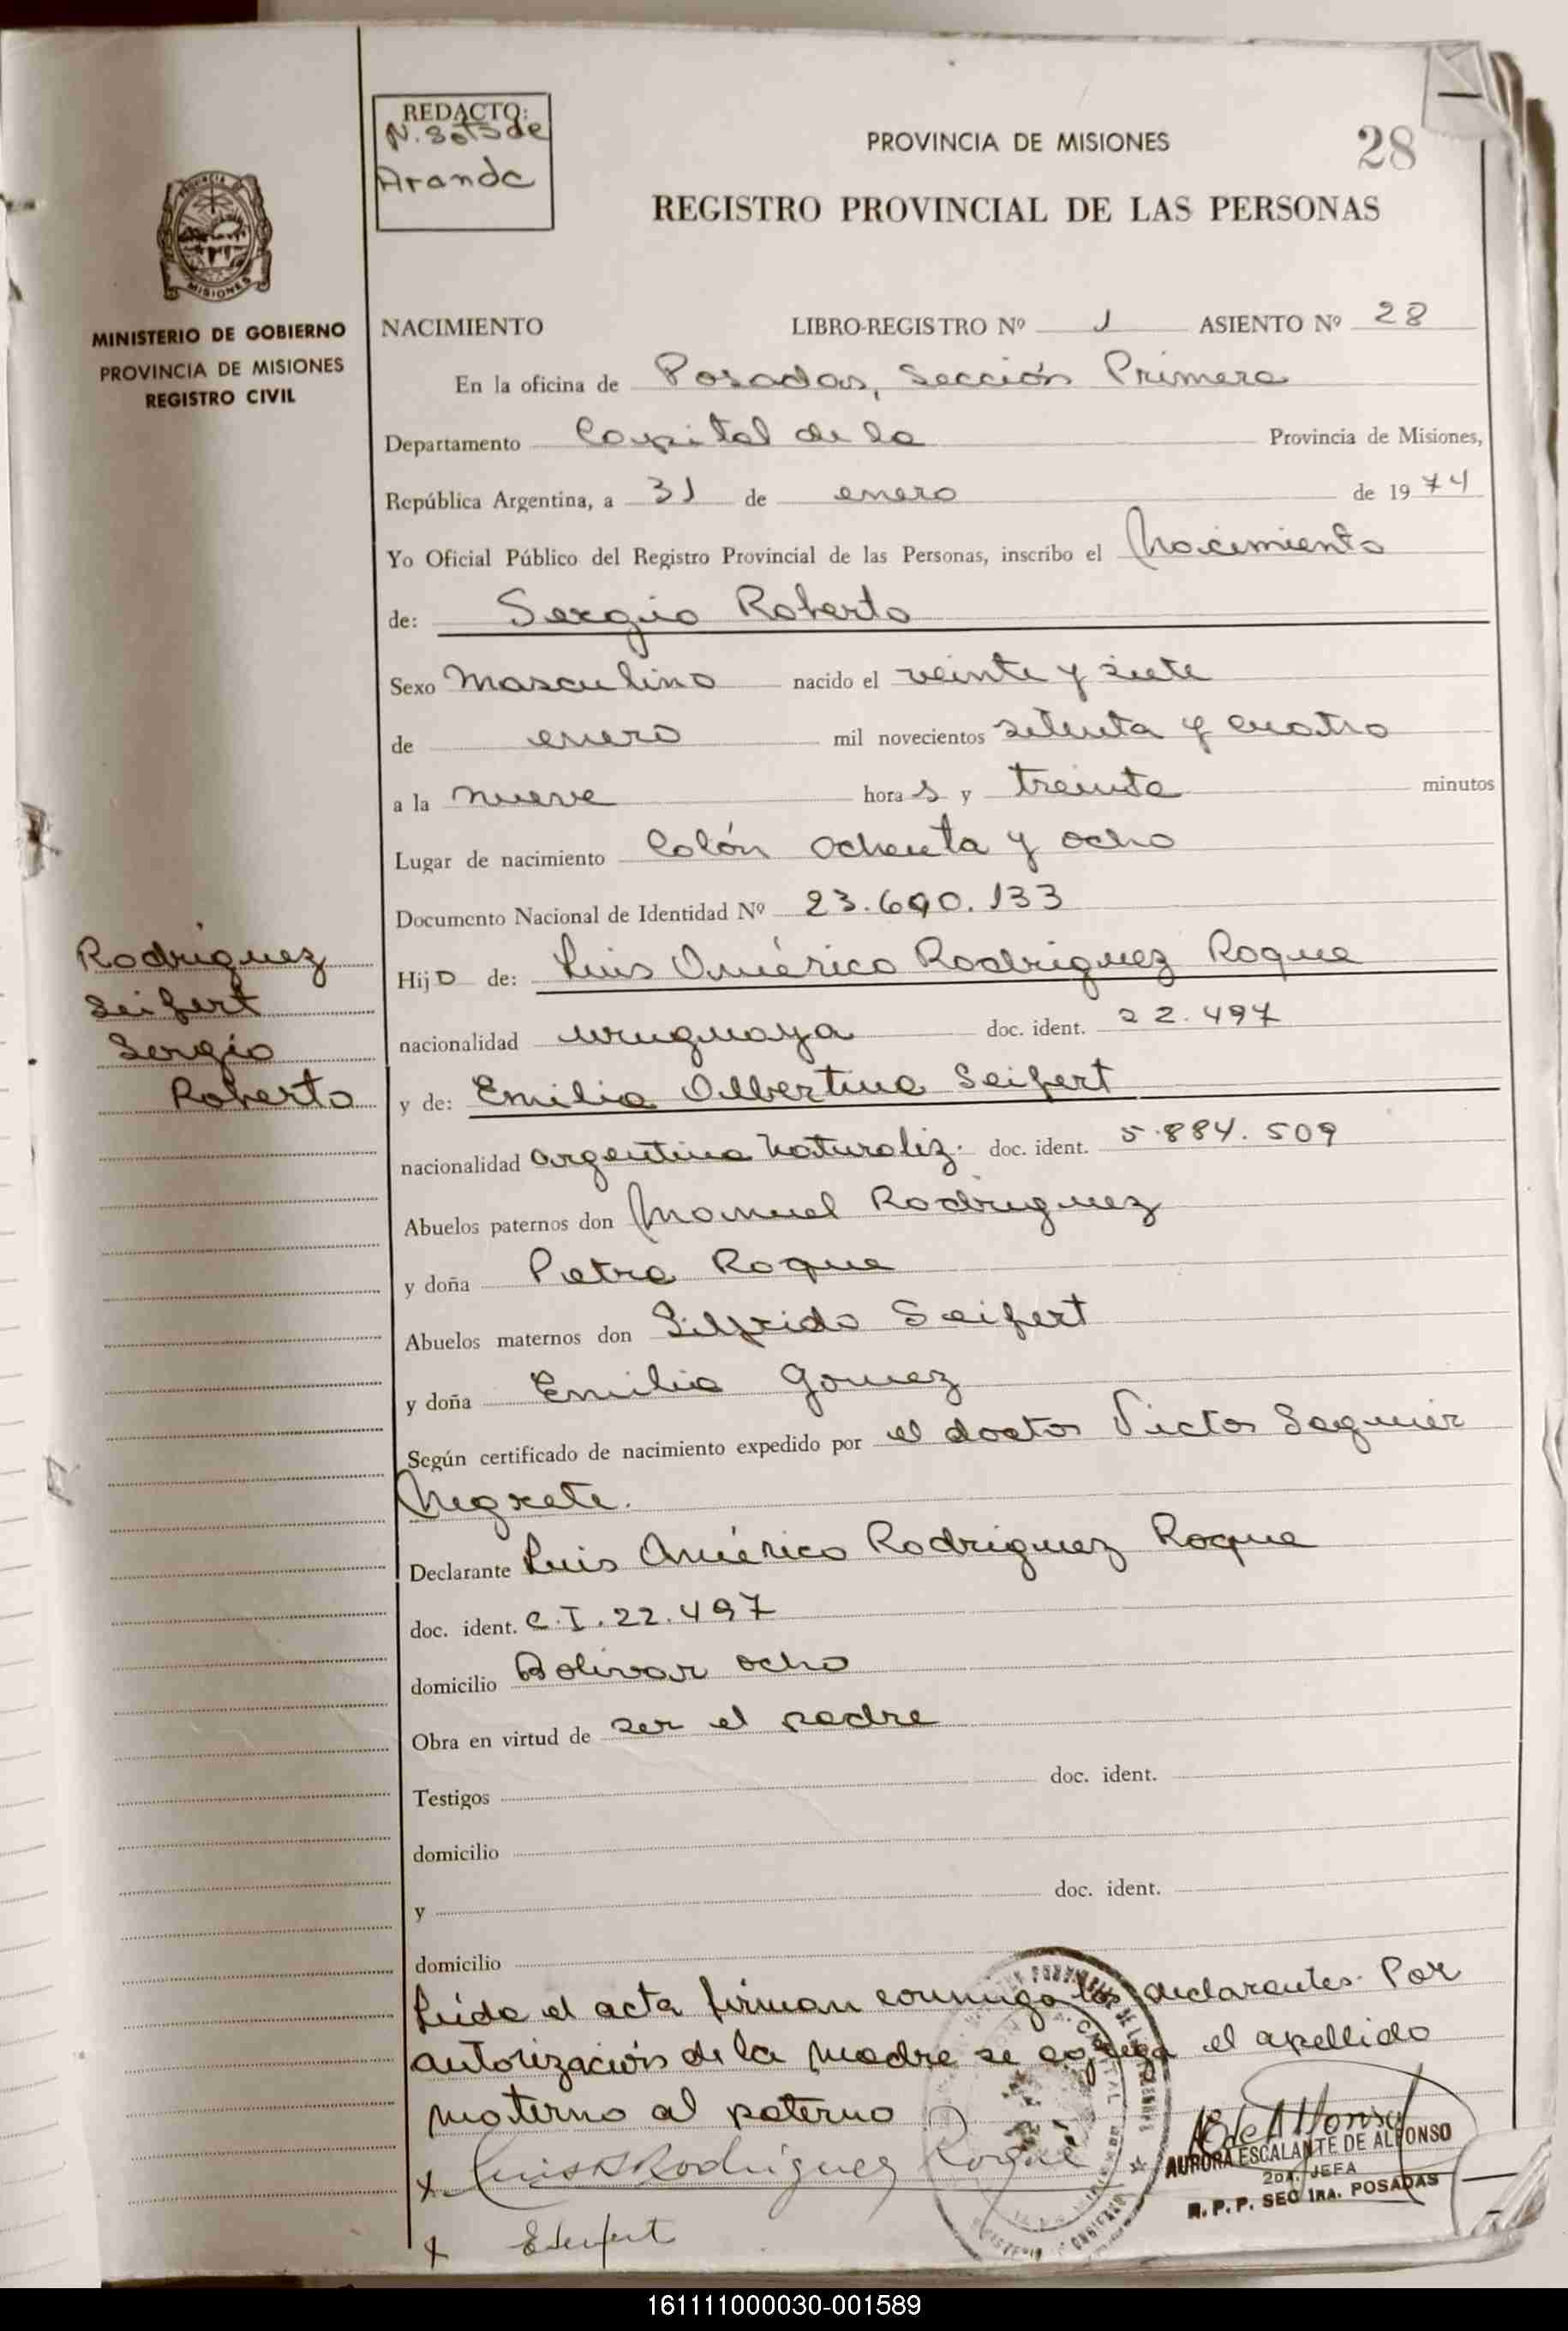 REDACTO:
Aranda
PROVINCIA DE MISIONES
28
REGISTRO PROVINCIAL DE LAS PERSONAS
MISIONES
MINISTERIO DE GOBIERNO
PROVINCIA DE MISIONES
REGISTRO CIVIL
NACIMIENTO LIBRO-REGISTRO Nº 1 ASIENTO Nº 28
En la oficina de Posadas, Sección Primera
Departamento Capital de la Provincia de Misiones,
República Argentina, a 31 de enero de 1974
Yo Oficial Público del Registro Provincial de las Personas, inscribo el Nacimiento
de: Sergio Roberto
Sexo Masculino nacido el veinte y siete
de enero mil novecientos setenta y cuatro
a la nueve hora s y treinta minutos
Lugar de nacimiento Colón ochenta y ocho
Documento Nacional de Identidad Nº 23.690.133
Rodriguez
Seifert
Sergio
Roberto
Hijo de: Luis Américo Rodriguez Roque
nacionalidad uruguaya doc. ident. 22.497
y de: Emilia Albertina Seifert
nacionalidad argentina Naturaliz. doc. ident. 5.884.509
Abuelos paternos don Manuel Rodriguez
y doña Petra Roque
Abuelos maternos don Silfrido Seifert
y doña Emilia Gomez
Según certificado de nacimiento expedido por el doctor Victor Seguier
Negrete.
Declarante Luis Américo Rodriguez Roque
doc. ident. C.I. 22.497
domicilio Bolivar ocho
Obra en virtud de ser el padre
Testigos doc. ident.
domicilio
y doc. ident.
domicilio
Leida el acta firman conmigo los declarantes. Por
autorización de la madre se agrega el apellido
materno al paterno
x Luis A Rodriguez Roque
AURORA ESCALANTE DE ALFONSO
2DA. JEFA
R. P. P. SEC 1RA. POSADAS
x ESeifert
161111000030-001589